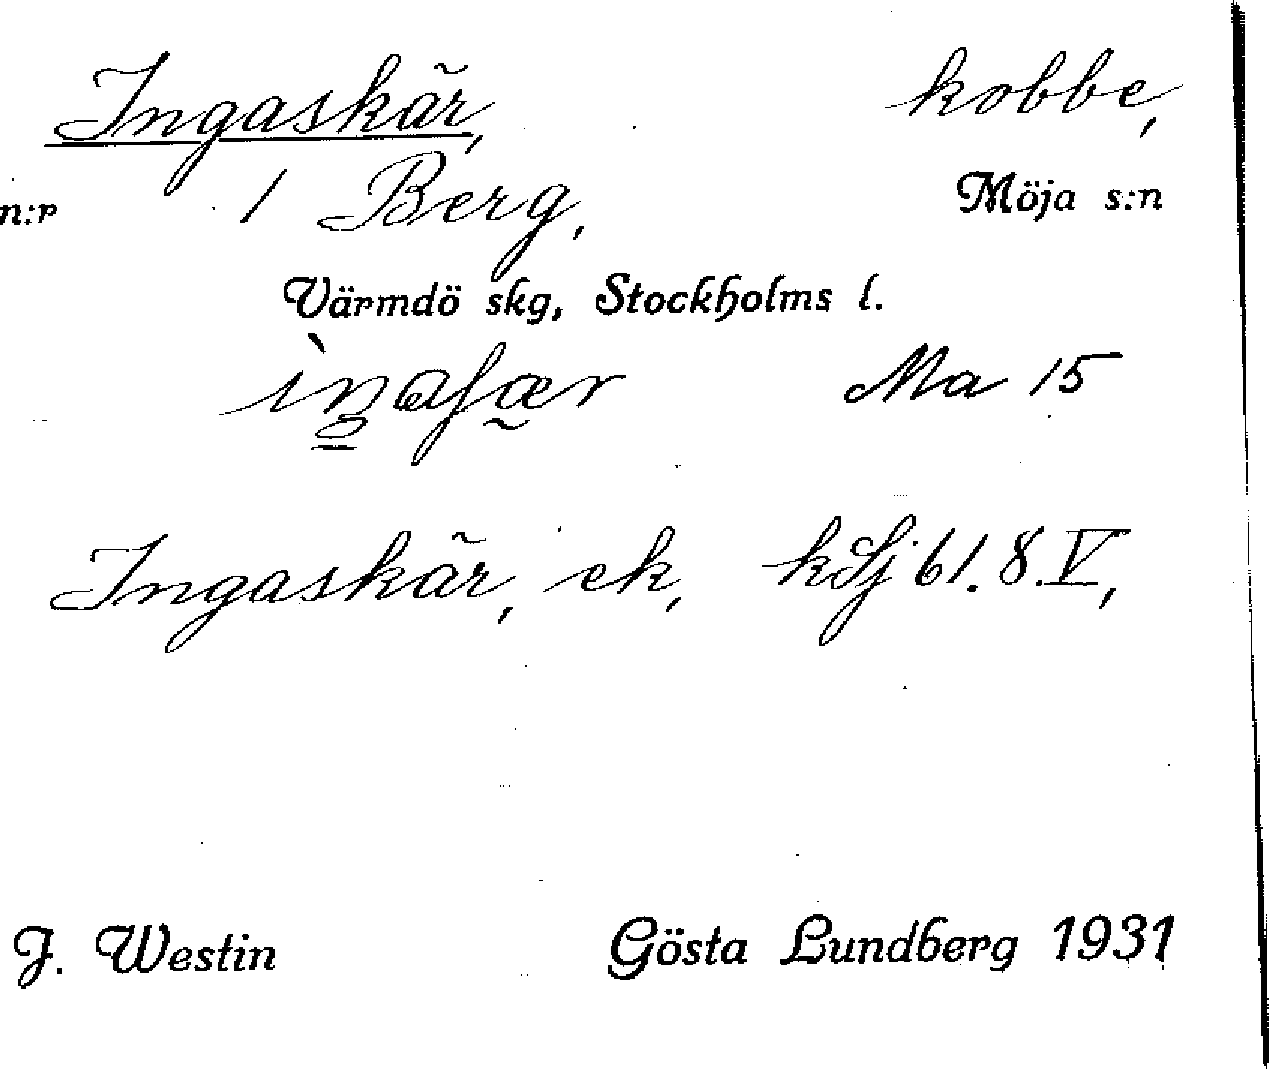 Ingaskär, kobbe,
n:r 1 Berg, Möja s:n
Värmdö skg, Stockholms l.
Ma 15
Ingaskär, ek, kSj 61. 8. V,
J. Westin Gösta Lundberg 1931